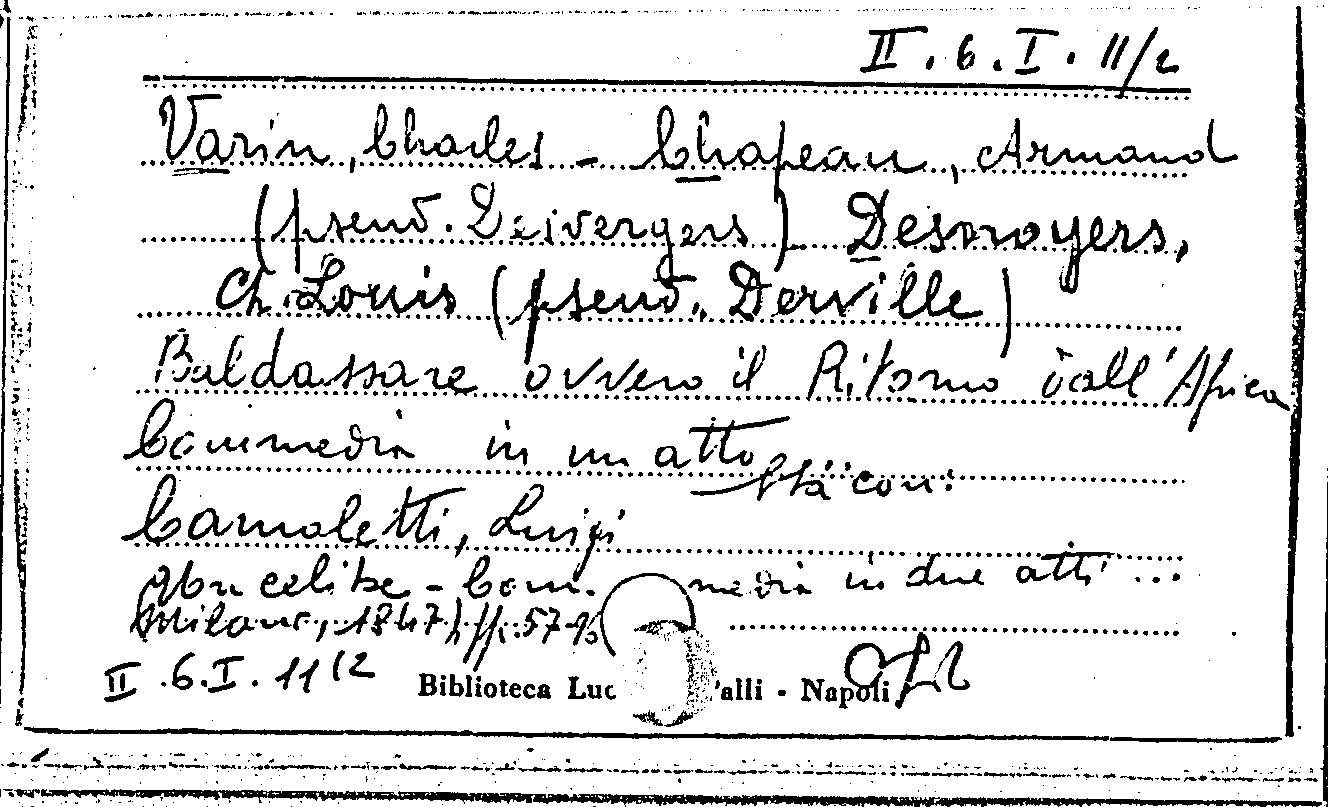 II. 6. I. 11/2
Varin, Charles - Chapeau, Armand
(pseud. Desvergers) Desnoyers,
Ch. Louis (pseud. Derville)
Baldassare ovvero il Ritorno dall'Africa
Commedia in un atto
Sta con:
Camoletti, Luigi
celibe - Com. media in due atti ...
Milano, 1847), ff. 57-
II. 6. I. 11/2
Biblioteca Luc alli - Napoli